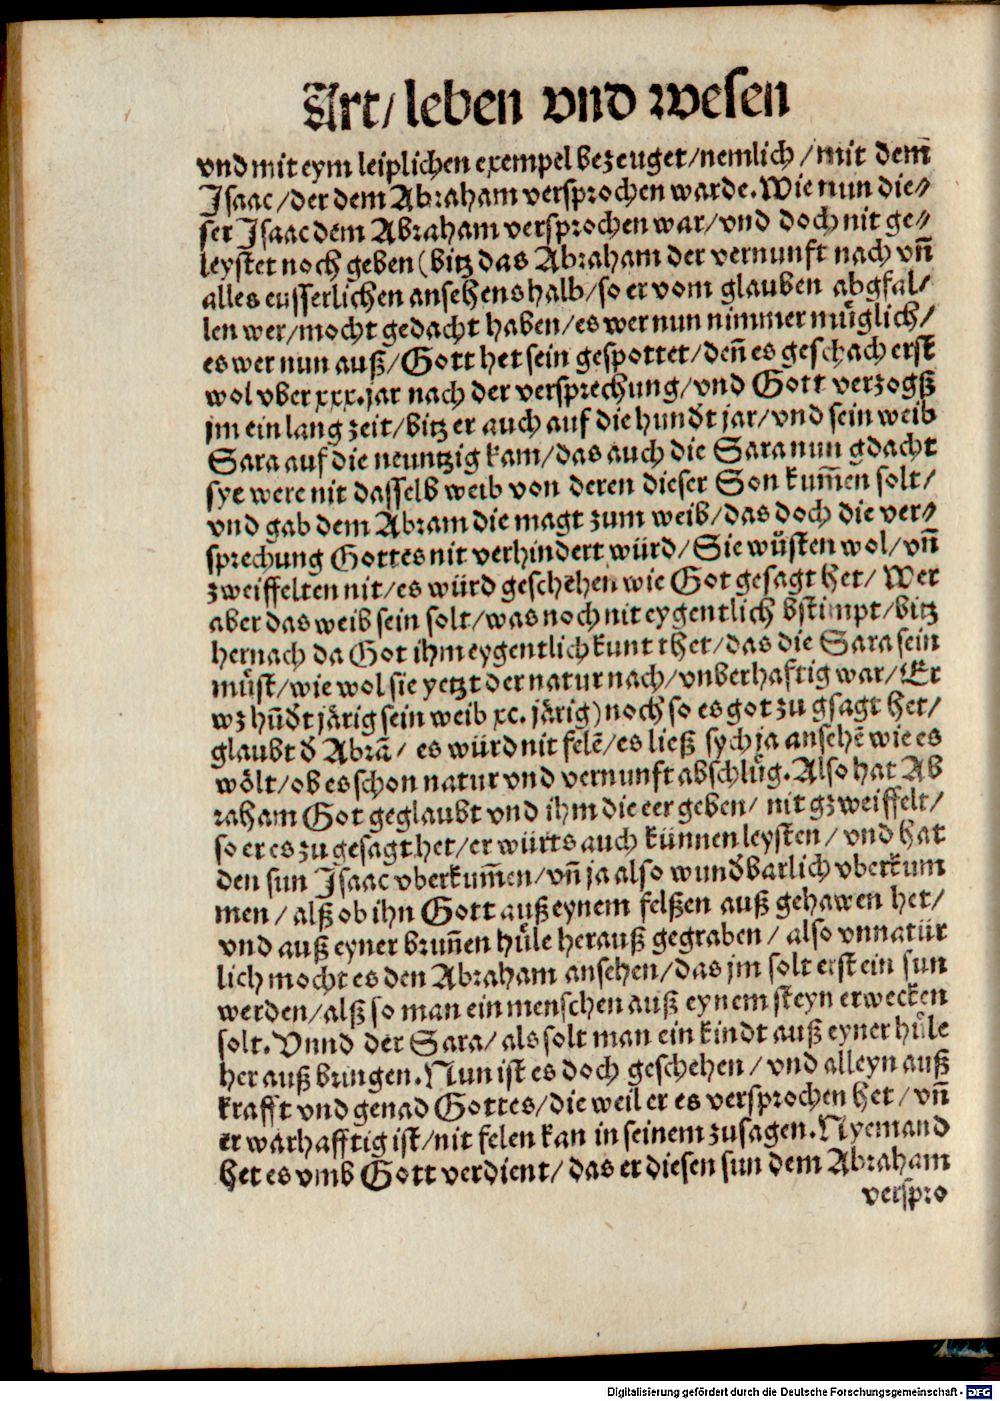 Art/ leben vnd wesen
vnd mit eym leiplichen exempel bezeuget/nemlich/mit dem̄
Isaac/der dem Abraham versprochen warde. Wie nun die⸗
ser Isaac dem Abraham versprochen war/vnd doch nit ge⸗
leystet noch geben (bitz das Abraham der vernunft nach vñ
alles eusserlichen ansehens halb/so er vom glauben abgfal⸗
len wer/mocht gedacht haben/es wer nun nimmer muͤglich/
es wer nun auß/Gott het sein gespottet/deñ es geschach erst
wol vber xxx.jar nach der versprechung/vnd Gott verzogß
jm ein lang zeit/bitz er auch auf die hundt jar/vnd sein weib
Sara auf die neuntzig kam/das auch die Sara nun gdacht
sye were nit dasselb weib von deren dieser Son kum̄en solt/
vnd gab dem Abram die magt zum weib/das doch die ver⸗
sprechung Gottes nit verhindert wuͤrd/Sie wuͤsten wol/vñ
zweiffelten nit/es wuͤrd geschehen wie Got gesagt het/ Wer
aber das weib sein solt/was noch nit eygentlich bstimpt/bitz
hernach da Got ihm eygentlich kunt thet/das die Sara sein
muͤst/wie wol sie yetzt der natur nach/vnberhaftig war/Er
wz hūdt jaͤrig sein weib xc. jaͤrig) noch so es got zu gsagt het/
glaubt đ Abrā/ es wuͤrd nit felē/es ließ sych ja ansehē wie es
woͤlt/ob es schon natur vnd vernunft abschluͤg. Also hat Ab
raham Got geglaubt vnd ihm die eer geben/ nit gzweiffelt/
so er es zu gesagt het/er wuͤrts auch kuͤnnen leysten/ vnd hat
den sun Isaac vberkum̄en/vñ ja also wundbarlich vberkum
men/ alß ob ihn Gott auß eynem felßen auß gehawen het/
vnd auß eyner bruñen huͤle herauß gegraben/ also vnnatuͤr
lich mocht es den Abraham ansehen/das jm solt erst ein sun
werden/alß so man ein menschen auß eynem steyn erwecken
solt. Vnnd der Sara/ als solt man ein kindt auß eyner huͤle
her auß bringen. Nun ist es doch geschehen/ vnd alleyn auß
krafft vnd genad Gottes/die weil er es versprochen het/ vñ
er warhafftig ist/nit felen kan in seinem zusagen. Nyemand
het es vmb Gott verdient/ das er diesen sun dem Abraham
verspro
Digitalisierung gefördert durch die Deutsche Forschungsgemeinschaft - DFG